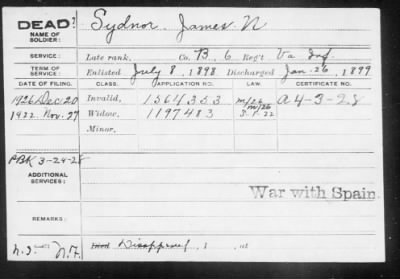 DEAD?
NAME OF SOLDIER:
Sydnor, James N
SERVICE:
Late rank, Co. B, 6 Reg't Va Inf.
TERM OF SERVICE:
Enlisted July 8, 1898 Discharged Jan. 26, 1899
DATE OF FILING. CLASS. APPLICATION NO. LAW. CERTIFICATE NO.
1926 Dec. 20 Invalid, 1564353 A-4-3-28
1922 Nov. 27 Widow, 1197483
Minor,
3-24-28
ADDITIONAL SERVICES:
War with Spain
REMARKS:
Died Disapproved, 1 , at